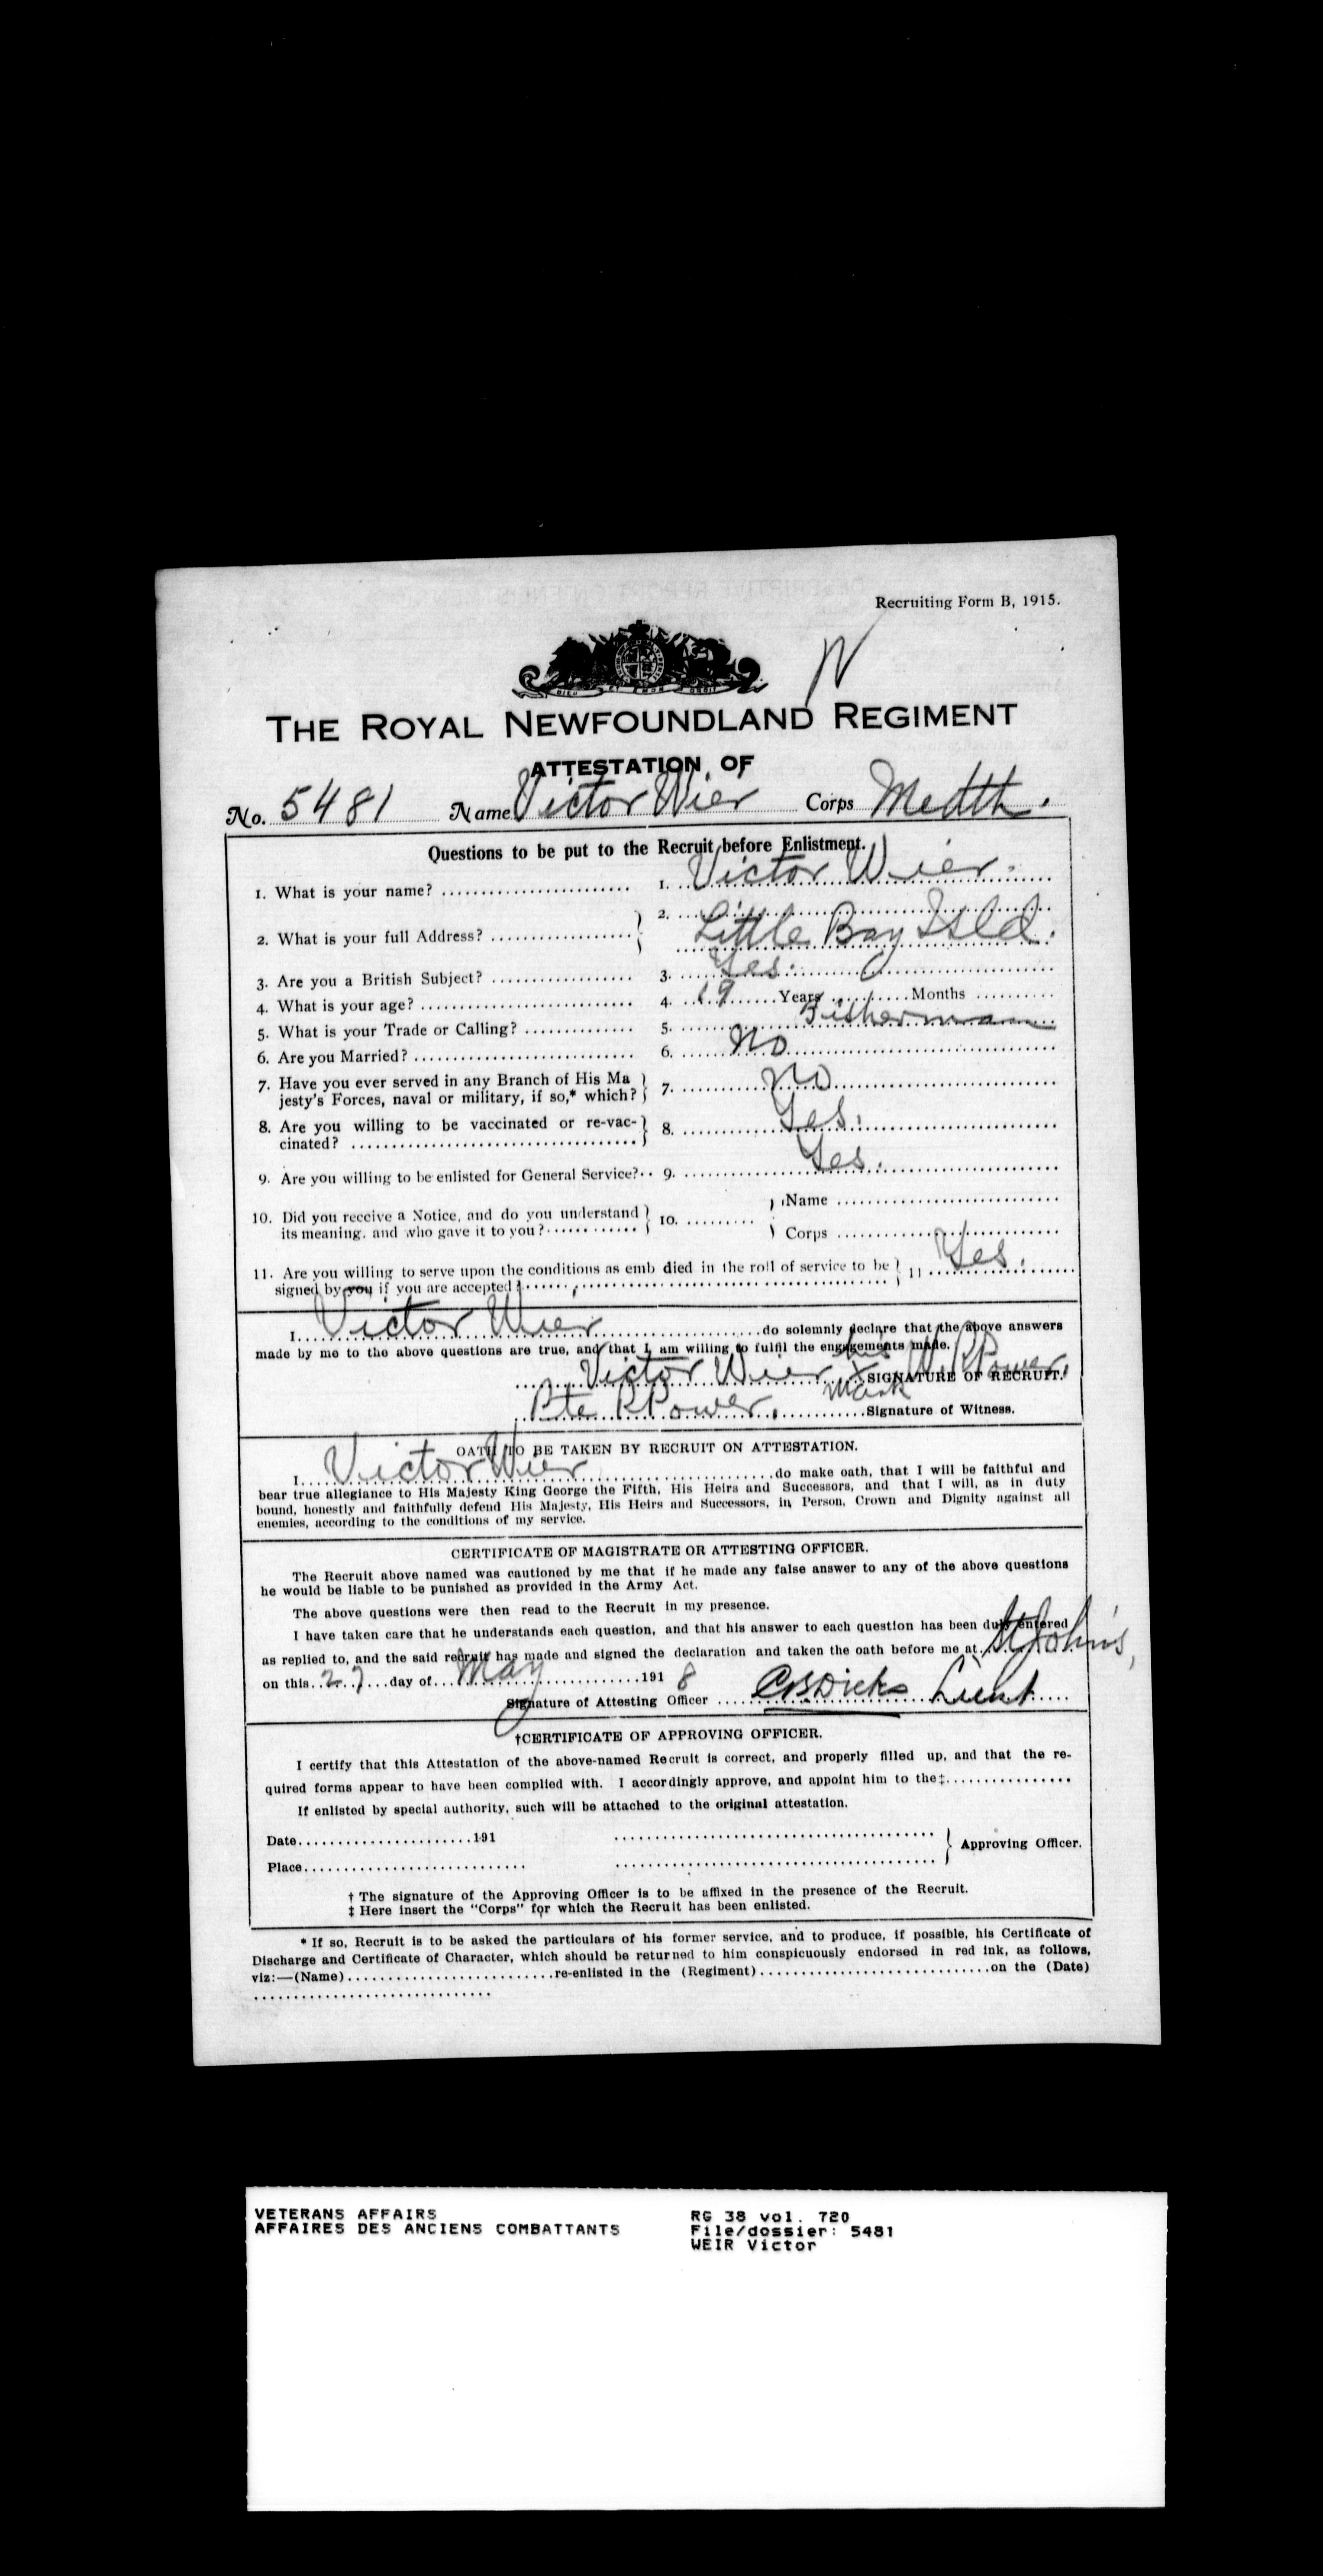 Recruiting Form B, 1915.
DIEU ET MON DROIT
THE ROYAL NEWFOUNDLAND REGIMENT
ATTESTATION OF
No. 5481 Name Victor Wier Corps Methh.
Questions to be put to the Recruit before Enlistment.
1. What is your name? 1. Victor Wier.
2. What is your full Address? 2. Little Bay Isld.
3. Are you a British Subject? 3. Yes.
4. What is your age? 4. 19 Years Months
5. What is your Trade or Calling? 5. Fisherman
6. Are you Married? 6. No
7. Have you ever served in any Branch of His Ma
jesty's Forces, naval or military, if so,* which? 7. No
8. Are you willing to be vaccinated or re-vac-
cinated? 8. Yes.
9. Are you willing to be enlisted for General Service? 9. Yes.
10. Did you receive a Notice, and do you understand
its meaning, and who gave it to you? 10. Name
Corps
11. Are you willing to serve upon the conditions as emb died in the roll of service to be
signed by you if you are accepted? 11 Yes.
I Victor Wier do solemnly declare that the above answers
made by me to the above questions are true, and that I am willing to fulfil the engagements made.
Victor Wier his X mark W. P. Power. SIGNATURE OF RECRUIT.
Pte P Power. Signature of Witness.
OATH TO BE TAKEN BY RECRUIT ON ATTESTATION.
I Victor Wier do make oath, that I will be faithful and
bear true allegiance to His Majesty King George the Fifth, His Heirs and Successors, and that I will, as in duty
bound, honestly and faithfully defend His Majesty, His Heirs and Successors, in Person, Crown and Dignity against all
enemies, according to the conditions of my service.
CERTIFICATE OF MAGISTRATE OR ATTESTING OFFICER.
The Recruit above named was cautioned by me that if he made any false answer to any of the above questions
he would be liable to be punished as provided in the Army Act.
The above questions were then read to the Recruit in my presence.
I have taken care that he understands each question, and that his answer to each question has been duly entered
as replied to, and the said recruit has made and signed the declaration and taken the oath before me at St John's,
on this 27 day of May 1918
Signature of Attesting Officer CB Dicks Lieut
†CERTIFICATE OF APPROVING OFFICER.
I certify that this Attestation of the above-named Recruit is correct, and properly filled up, and that the re-
quired forms appear to have been complied with. I accordingly approve, and appoint him to the‡
If enlisted by special authority, such will be attached to the original attestation.
Date 191
Place Approving Officer.
† The signature of the Approving Officer is to be affixed in the presence of the Recruit.
‡ Here insert the "Corps" for which the Recruit has been enlisted.
* If so, Recruit is to be asked the particulars of his former service, and to produce, if possible, his Certificate of
Discharge and Certificate of Character, which should be returned to him conspicuously endorsed in red ink, as follows,
viz:—(Name) re-enlisted in the (Regiment) on the (Date)
VETERANS AFFAIRS RG 38 vol. 720
AFFAIRES DES ANCIENS COMBATTANTS File/dossier: 5481
WEIR Victor